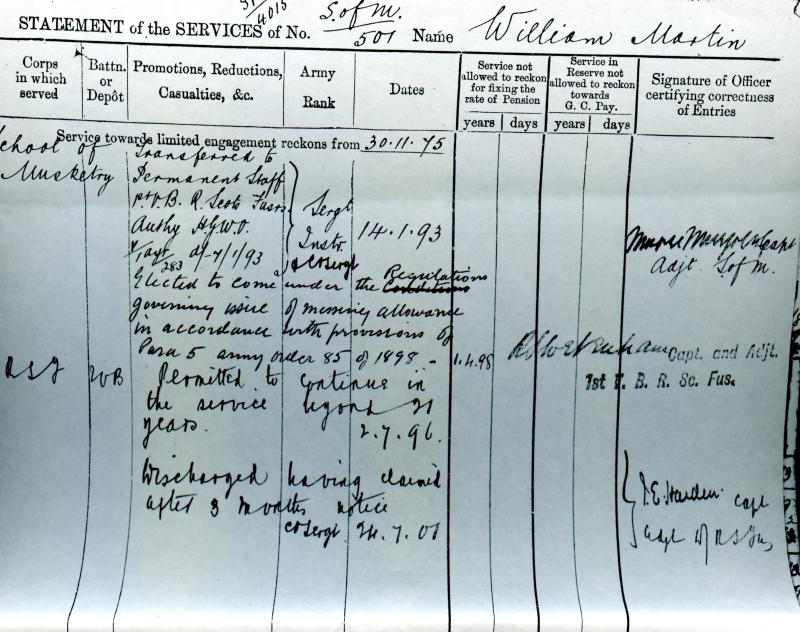 4013
S. of M.
STATEMENT of the SERVICES of No. 501 Name William Martin
Corps in which served
Battn. or Depôt
Promotions, Reductions, Casualties, &c.
Army Rank
Dates
Service not allowed to reckon for fixing the rate of Pension
years days
Service in Reserve not allowed to reckon towards G. C. Pay.
years days
Signature of Officer certifying correctness of Entries
Service towards limited engagement reckons from 30.11.75
School of Musketry
Transferred to
Permanent Staff
V.B. R. Scots Fusrs
Authy H.G.W.O.
283 d/-7/1/93
Sergt
Instr.
& C Sergt
14.1.93
Capt
Adjt. S of M.
Elected to come under the Regulations Conditions
governing issue of messing allowance
in accordance with provisions of
Para 5 army order 85 of 1898 - 1.4.98
Capt. and Adjt.
1st V. B. R. Sc. Fus.
R S F
Permitted to continue in
the service beyond 21
years.
2.7.96.
Discharged having claimed
after 3 months notice
C Sergt 24.7.01
Harden Capt
Adjt